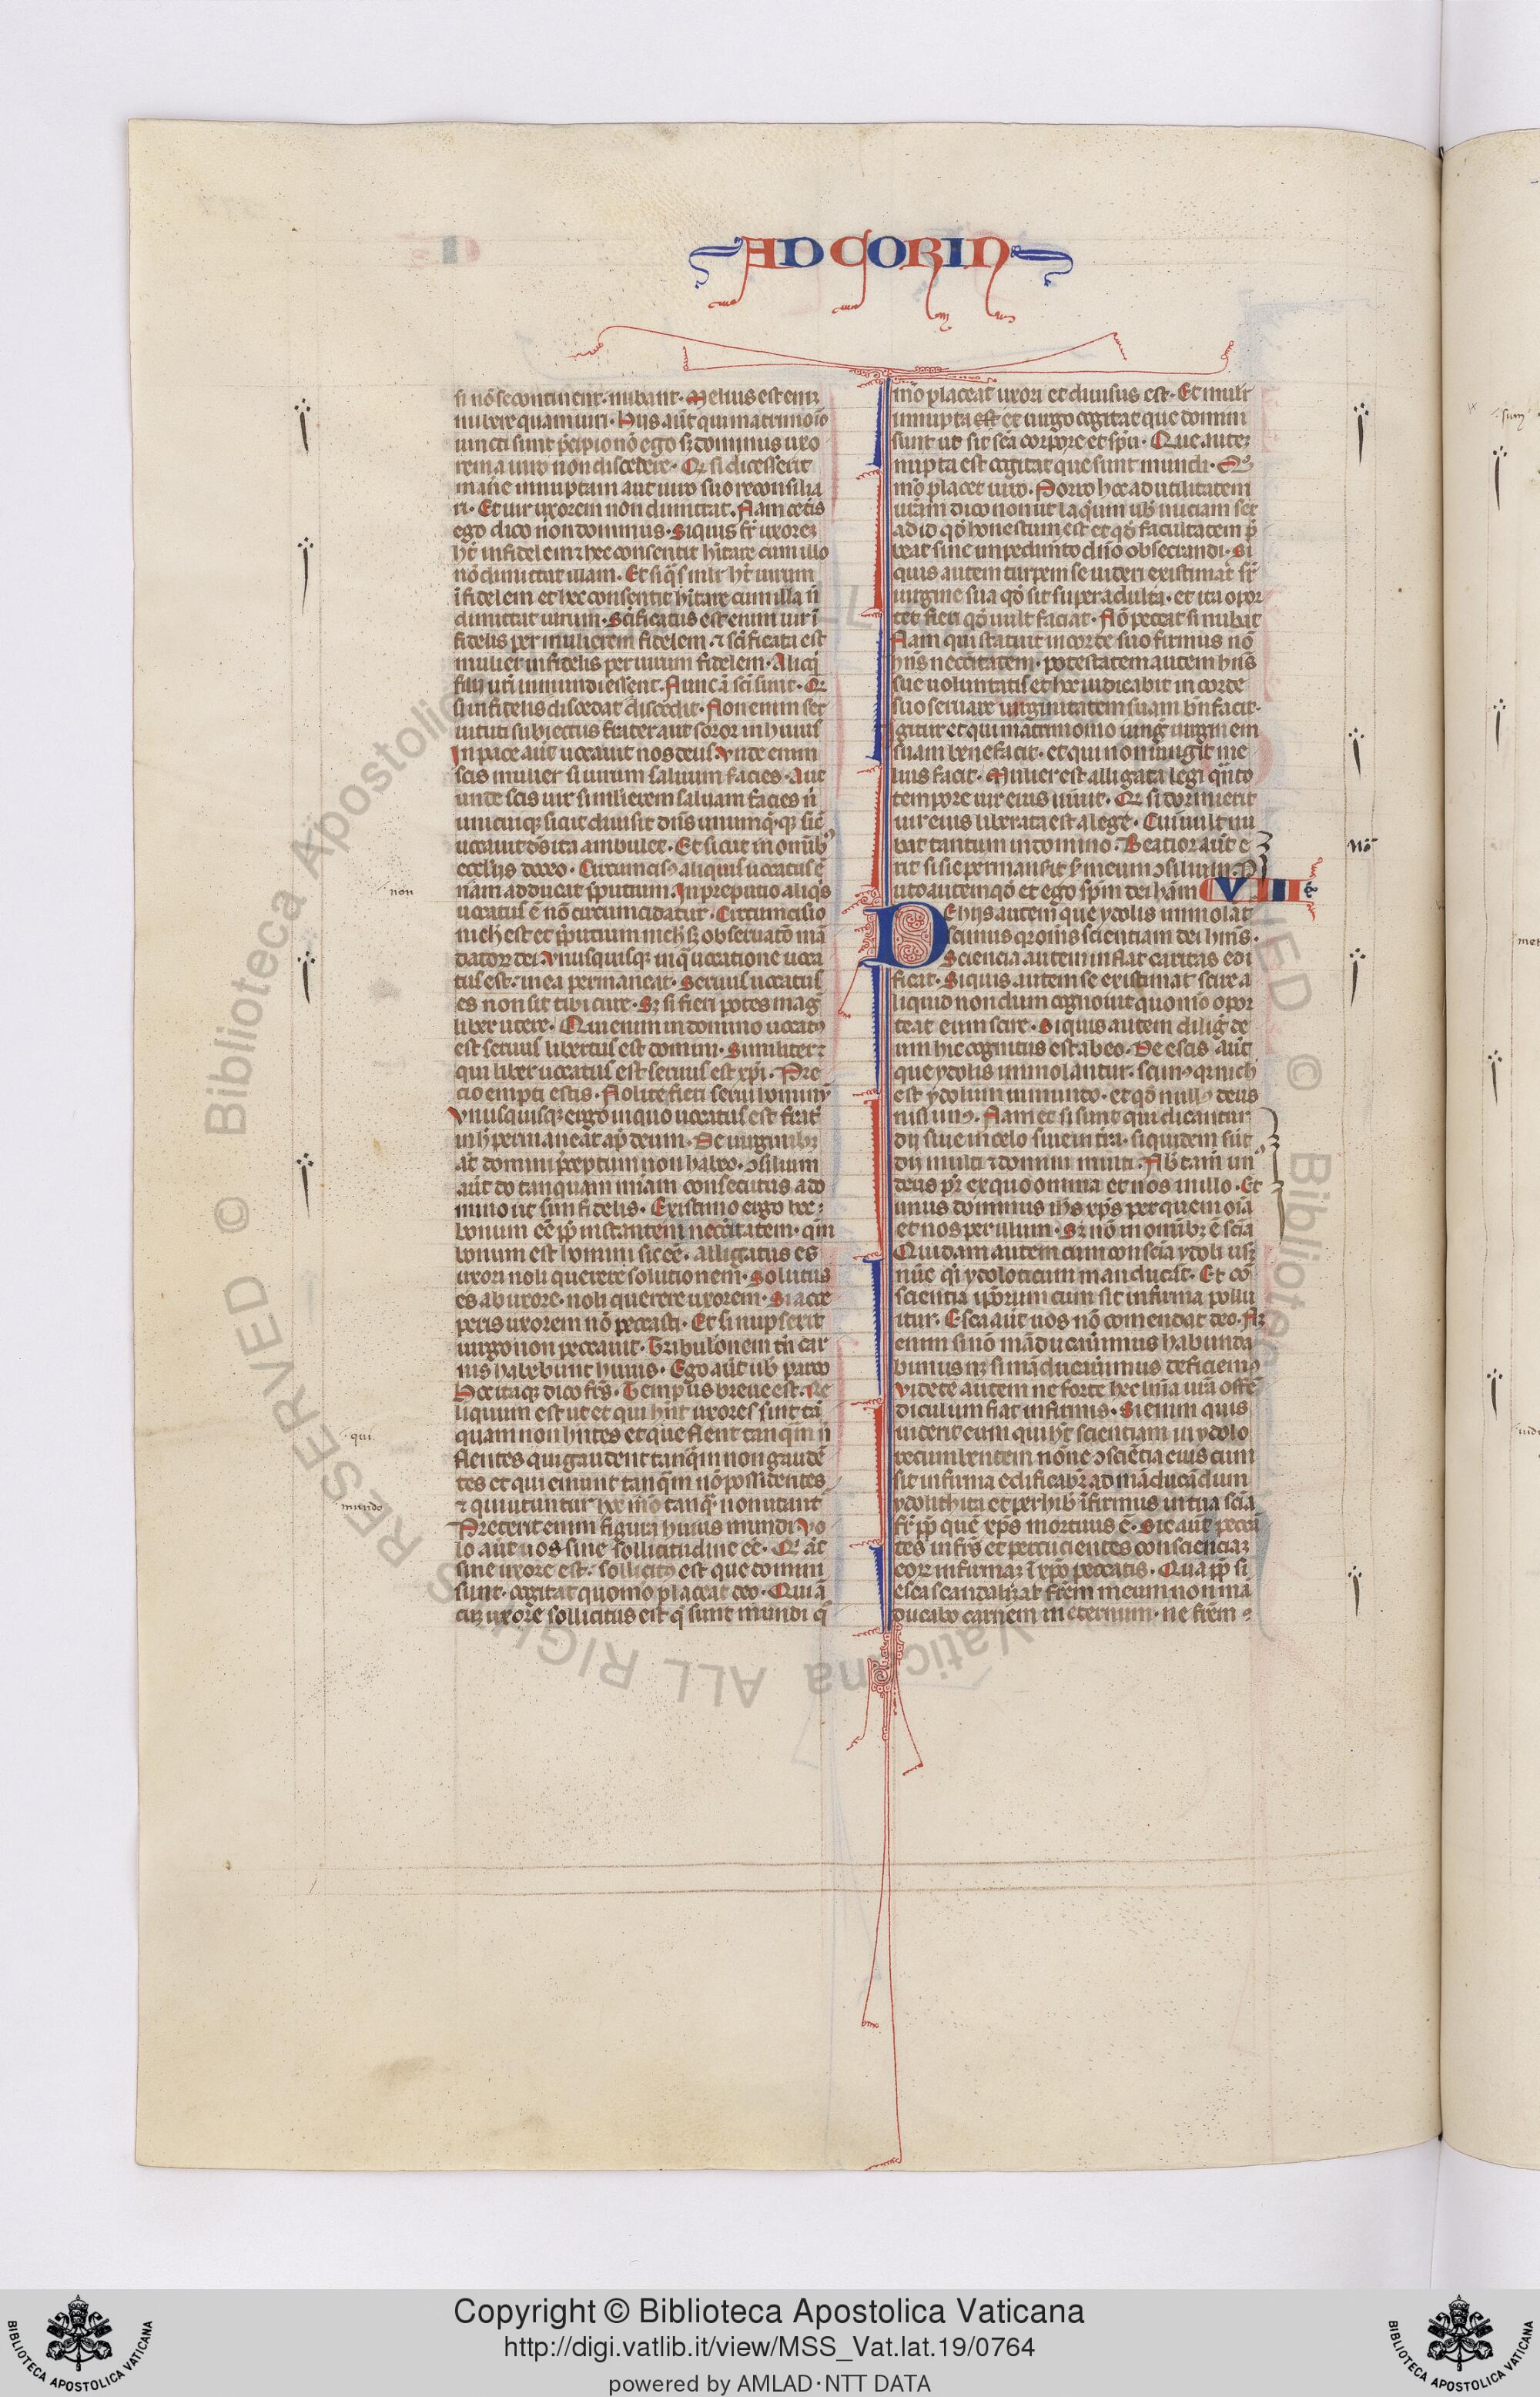 AD CORIN
si nõ se continent· nubant· Melius est eniꝫ
nubere quam uri· Hijs aũt qui matrimoĩo
iuncti sunt p̃cipio nõ ego sꝫ dominus uxo
rem a uiro non discedere· Qꝫ si discesserit
mañe innuptam aut uiro suo reconsilia
ri· Et uir uxorem non dimittat· Nam cet̃is
ego dico non dominus· Siquis fr̃ uxoreꝫ
hꝫ̃ infidelem ⁊ hec consentit hĩtare cum illo
nõ dimittat illam· Et si q̃ sml̃r hꝫ̃ uirum
ĩfidelem et hec consentit hĩtare cum illa ñ
dimittat uirum· Sc̃ificatus est enim uir ĩ
fidelis per mulierem fidelem· ⁊ sc̃ificata est
mulier infidelis per uirum fidelem· Alioq̃
filij ur̃i inmundi essent· Nunc ã sc̃i sunt· Qꝫ
si infidelis discedat discedit· Non enim ser
uituti subiectus frater aut soror in huius
In pace aũt uocauit nos deus· Vnde enim
scis mulier si uirum saluum facies· Aut
unde scis uir si mulierem saluam facies ñ
unicuiqꝫ sicut diuisit dñs unumq̃qꝫ sic̃
uocauit dẽs ita ambulet· Et sicut in omnibꝰ
eccl̃ijs doceo· Circumcisꝰ aliquis uocatus ẽ
non
nam adducat p̃putium· In preputio aliq̃s
uocatus ẽ nõ circumcidatur· Circumcisio
nich̃ est et p̃putium nich̃ sꝫ obseruatõ mã
datoꝝ dei· Vnusquisqꝫ in q̃ uocatione uoca
tus est· in ea permaneat· Seruus uocatus
es non sit tibi cure· Sꝫ si fieri potes mag̃
liber utere· Qui enim in domino uocatꝰ
est seruus libertus est domini· Similiter ⁊
qui liber uocatus est seruus est xp̃i· Pre
cio empti estis· Nolite fieri serui hominũ
Vnusquisqꝫ ergo in quo uocatus est frat̃
in h̃ permaneat ap̃ deum· De uirginibꝫ
at̃ domini p̃ceptum non habeo· ↄsilium
aũt do tanquam mĩam consecutus a do
mino ut sim fidelis· Existimo ergo hoc
bonum eẽ pp̃ instantem nec̃citatem· qm̃
bonum est homini sic eẽ· alligatus es
uxori noli querere solutionem· Solutus
es ab uxore· noli querere uxorem· Si acce
peris uxorem nõ peccasti· Et si nupserit
uirgo non peccauit· Tribulõnem tñ car
nis habebunt huius· Ego aũt uob̃ parco
Hoc itaqꝫ dico fr̃s· Tempus breue est· Re
liquum est ut et qui hñt uxores sint tã
qui
quam non hñtes et que flent tanq̃m ñ
flentes qui gaudent tanq̃m non gaudẽ
tes et qui emunt tanq̃m nõ possidentes
mundo
⁊ qui utuntur hoc mõ tanq̃ non utant̃
Preterit enim figura huius mundi· Vo
lo aũt uos sine sollicitudine eẽ· Qꝫ at̃
sine uxore est· sollicitꝰ est que domini
sunt· cogitat quomõ placeat deo· Qui ã
cũ uxore sollicitus est q̃ sunt mundi q̃
mõ placeat uxori et diuisus est· Et mulr̃
innupta est et uirgo cogitat que domini
sunt ut sit sc̃a corpore et sp̃u· Que auteꝫ
nupta est cogitat que sunt mundi· Quo
mõ placet uiro· Porro hoc ad utilitatem
ur̃am dico non ut laq̃um uob̃ iniciam set
ad id qđ honestum est et qđ facultatem p̃
beat sine inpedim̃to dño obsecrandi· Si
quis autem turpem se uideri existimat sr̃
uirgine sua qđ sit superadulta· et ita opor
tet fieri qđ uult faciat· Nõ peccat si nubat
Nam qui statuit in corde suo firmus nõ
hñs nec̃citatem· potestatem autem hñs
sue uoluntatis et hoc iudicabit in corde
suo seruare uirginitatem suam bñ facit·
Igitur et qui matrimonio iungit uirginem
suam bene facit· et qui non iungit me
lius facit· Mulier est alligata legi q̃nto
tempore uir eius uiuit· Qꝫ si dormierit
uir eius liberata est a lege· Cui uult nu
bat tantum in domino· Beatior aũt e
Nõ
rit si sic permansit s̃ meum ↄsilium· P
uto autem qđ et ego sp̃m dei hãm VIII
De hijs autem que ydolis immolãt̃
scimus qꝫ om̃s scientiam dei hm̃s·
Sciencia autem inflat caritas edi
ficat· Siquis autem se existimat scire a
liquid nondum cognouit quomõ opor
teat eum scire· Siquis autem dilig̃ de
um hic cognitus est ab eo· De escis aũt
que ydolis immolantur· scimꝰ qꝫ nich̃
est ydolum in mundo· et qđ nullꝰ deus
nisi unꝰ· Nam et si sunt qui dicantur
dij siue in celo siue in tr̃a· siquidem sũt
dij multi ⁊ domini multi· Nob̃ tam̃ unꝰ
deus pr̃ ex quo omnia et nos in illo· Et
unus dominus ih̃s xp̃s per quem oĩa
et nos per illum· Sꝫ nõ in omnibꝫ ẽ scĩa
Quidam autem cum conscĩa ydoli usqꝫ
nũc q̃i ydoloticum manducãt· Et cõ
scientia ip̃orum cum sit infirma pollu
itur· Esca aũt uos nõ comendat deo· Nꝫ
enim si nõ mãducauimus habunda
bimus nꝫ si mãducauimus deficiemꝰ
Videte autem ne forte hec licñia ur̃a offẽ
diculum fiat infirmis· Si enim quis
uiderit eum qui hꝫ̃ scientiam in ydolo
recumbentem nõne ↄsciẽtia eius cum
sit infirma edificabit̃ ad mãducãdum
ydolithita et perhib̃ ĩfirmus in tua scĩa
fr̃ pp̃ quẽ xp̃s mortuus ẽ· Sic aũt peccã
tes in fr̃s et percucientes conscienciaꝫ
eoꝝ infirmaꝫ ĩ xp̃o peccatis· Qua pp̃ si
esca scandalizat fr̃em meum non mã
ducabo carnem in eternum· ne fr̃em
Copyright © Biblioteca Apostolica Vaticana
http://digi.vatlib.it/view/MSS_Vat.lat.19/0764
powered by AMLAD·NTT DATA
BIBLIOTECA APOSTOLICA VATICANA
BIBLIOTECA APOSTOLICA VATICANA
© Biblioteca Apostolica Vaticana ALL RIGHTS RESERVED